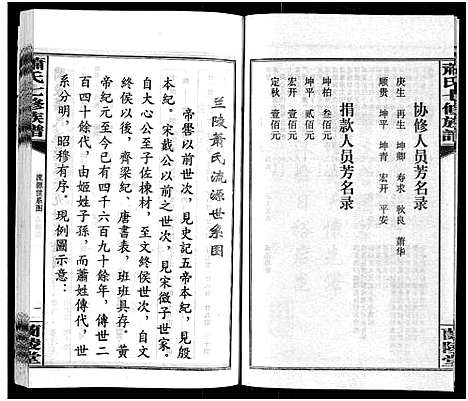 蕭氏七修族譜
協修人员芳名录
庚生 再生 坤卿 寿求 秋良 萧华
顺贵 坤平 坤青 宏开 平安
捐款人员芳名录
坤柏 叁佰元
坤平 贰佰元
宏开 壹佰元
定秋 壹佰元
蘭陵堂
兰陵萧氏流源世系图
帝嚳以前世次，見史記五帝本紀，見殷
本紀。宋戴公以前之世次，見宋微子世家。
自大心公至子佐棟材，至文終侯世次，自文
終侯以後，齊梁紀、唐書表，班班具存。黄
帝紀元至今已有四千六百九十餘年，傳世二
百四十餘代，由姬姓子孫，而蕭姓傳代，世
系分明，昭穆有序。現例圖示意：
蕭氏七修族譜
流源世系图
一
蘭陵堂